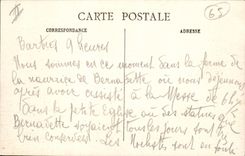 II
65
CARTE POSTALE
CORRESPONDANCE
ADRESSE
Bartrès 9 heures
Nous sommes en ce moment dans la ferme de
la nourrice de Bernadette où nous déjeunons
après avoir assisté à la Messe de 6h½
Dans la petite Eglise où des statues que
Bernadette voyait tous les jours sont très
bien conservées. Les